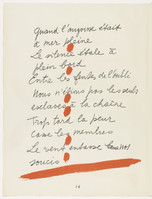 Quand l'angoisse était
à mer pleine
Le silence étale à
plein bord
Entre les fentes de l'oubli
Nous n'étions pas les seuls
esclaves à la chaîne
Trop tard la peur
casse les membres
Le vent entasse tous nos
soucis